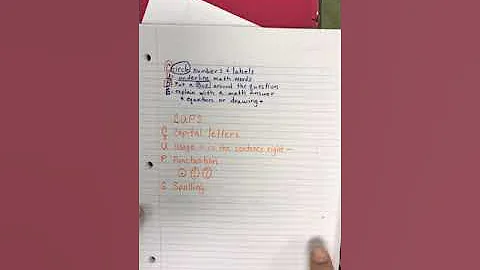 Circle numbers + labels
Underline math words
Put a Box around the question
Explain with a math answer
* equation or drawing *
CUPS
C Capital letters
U Usage - is the sentence right -
P Punctuation
. ! ?
S Spelling